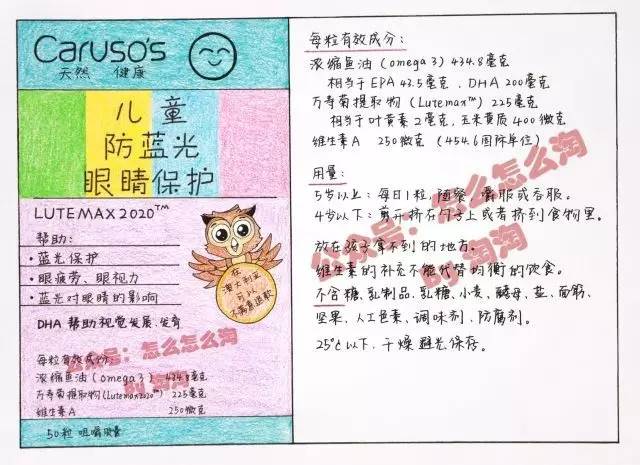 Caruso's
天然 健康
儿童
防蓝光
眼睛保护
LUTEMAX2020™
帮助:
·蓝光保护
·眼疲劳、眼视力
·蓝光对眼睛的影响
DHA 帮助视觉发展、发育
在
澳大利亚
可以
不满意退款
每粒有效成分
浓缩鱼油(omega 3) 434.8毫克
万寿菊提取物(Lutemax2020™) 225毫克
维生素A 250微克
50粒 咀嚼胶囊
公众号:怎么怎么淘
by 淘淘
每粒有效成分:
浓缩鱼油(omega 3) 434.8毫克
相当于EPA 43.5毫克、DHA 200毫克
万寿菊提取物(Lutemax™) 225毫克
相当于叶黄素2毫克,玉米黄质400微克
维生素A 250微克 (454.6国际单位)
用量:
5岁以上:每日1粒,随餐,嚼服或吞服。
4岁以下:剪开挤在勺子上或者挤到食物里。
放在孩子拿不到的地方。
维生素的补充不能代替均衡的饮食。
不含糖、乳制品、乳糖、小麦、酵母、盐、面筋、
坚果、人工色素、调味剂、防腐剂。
25℃以下,干燥避光保存。
公众号:怎么怎么淘
by 淘淘